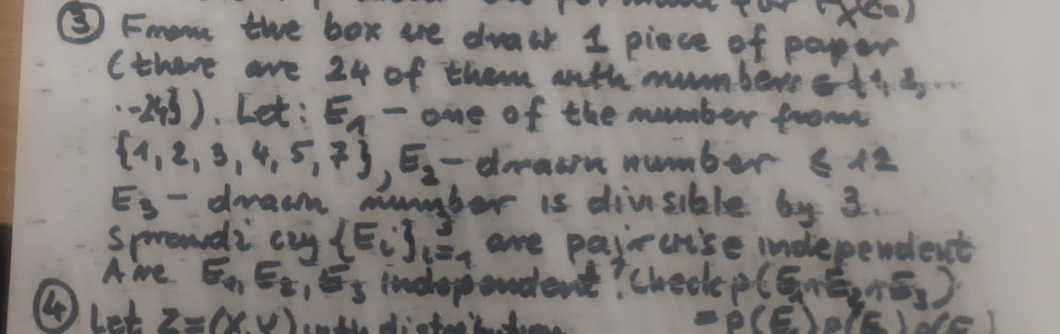 ③ From the box we draw 1 piece of paper
(there are 24 of them with numbers {1, 2,
..-24}). Let: E₁ - one of the number from
{1, 2, 3, 4, 5, 7}, E₂ - drawn number ≤ 12
E₃ - drawn number is divisible by 3.
Sprawdź czy {Eᵢ}³ᵢ₌₁ are pairwise independent
Are E₁, E₂, E₃ independent? Check p(E₁∩E₂∩E₃)
= p(E₁) p(E₂) p(E₃)
④ Let Z=(X,Y) with distribution